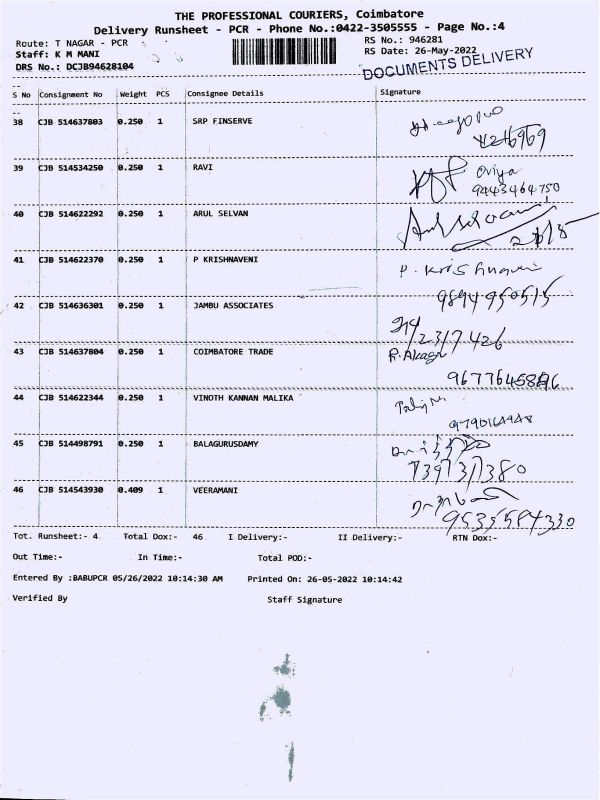 THE PROFESSIONAL COURIERS, Coimbatore
Delivery Runsheet - PCR - Phone No.:0422-3505555 - Page No.:4
Route: T NAGAR - PCR
RS No.: 946281
Staff: K M MANI
RS Date: 26-May-2022
DRS No.: DCJB94628104
DOCUMENTS DELIVERY
S No Consignment No Weight PCS Consignee Details Signature
38 CJB 514637803 0.250 1 SRP FINSERVE
39 CJB 514534250 0.250 1 RAVI
9443464750
40 CJB 514622292 0.250 1 ARUL SELVAN
41 CJB 514622370 0.250 1 P KRISHNAVENI
P. Krishnaveni
9894950515
42 CJB 514636301 0.250 1 JAMBU ASSOCIATES
43 CJB 514637804 0.250 1 COIMBATORE TRADE
44 CJB 514622344 0.250 1 VINOTH KANNAN MALIKA
9790164948
45 CJB 514498791 0.250 1 BALAGURUSDAMY
46 CJB 514543930 0.409 1 VEERAMANI
9535584330
Tot. Runsheet:- 4 Total Dox:- 46 I Delivery:- II Delivery:- RTN Dox:-
Out Time:- In Time:- Total POD:-
Entered By :BABUPCR 05/26/2022 10:14:30 AM Printed On: 26-05-2022 10:14:42
Verified By Staff Signature